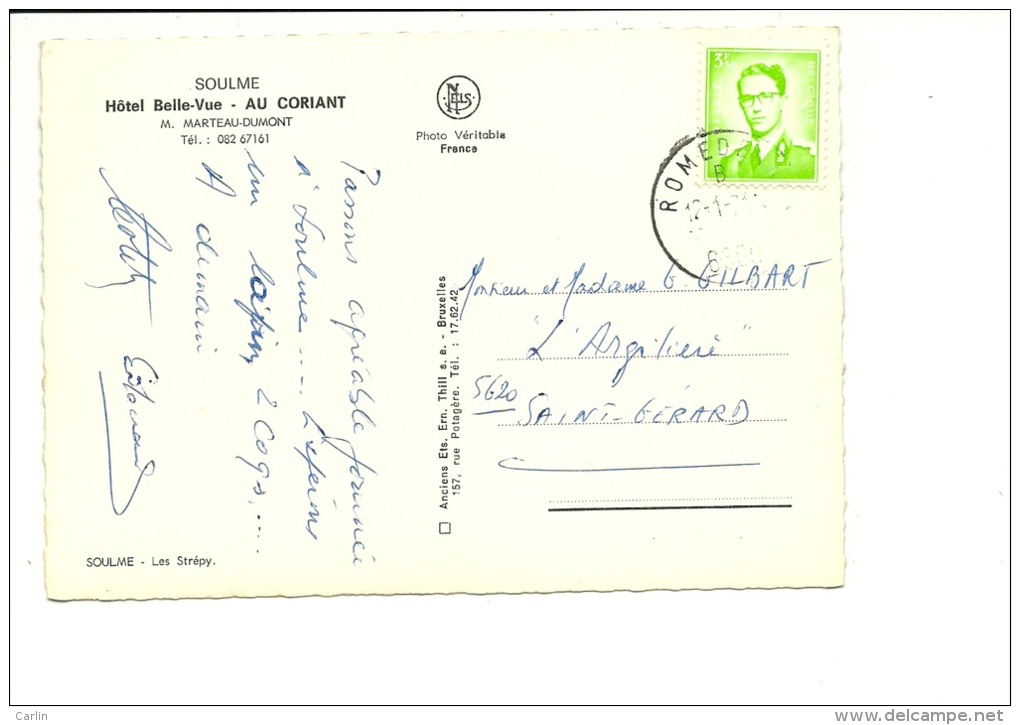 SOULME
Hôtel Belle-Vue - AU CORIANT
M. MARTEAU-DUMONT
Tél. : 082 67161
NELS
Photo Véritable
France
3F
BELGIQUE
ROMED
B
12-1-
Passons agréable journée
à Soulme .... Espérons
un lapin, 2 coqs, ....
A demain
Edouard
Monsieur et Madame G. GILBART
"L'Argilière"
5620
SAINT-GÉRARD
Anciens Ets. Ern. Thill s. a. - Bruxelles
157, rue Potagère. Tél. : 17.62.42
SOULME - Les Strépy.
Carlin
www.delcampe.net